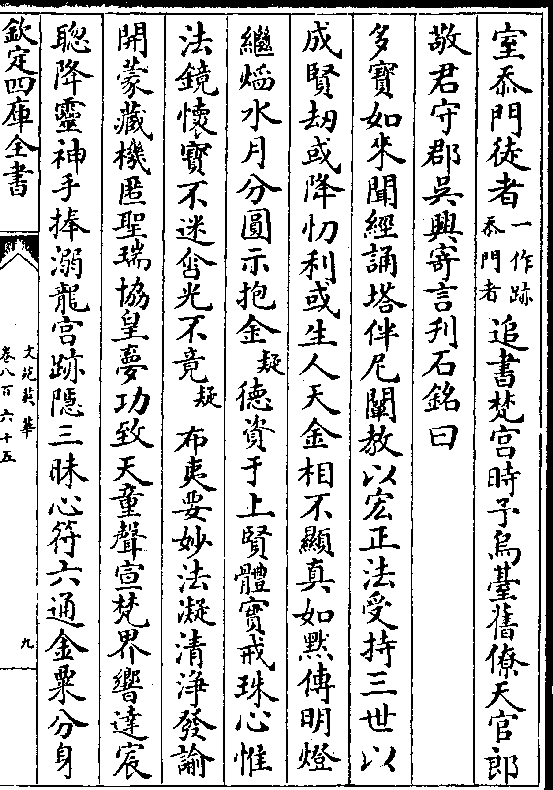 室忝門徒者一作跡忝門者追書梵宮時予烏臺舊僚天官郎
敬君守郡吳興寄言刋石銘曰
多寶如來聞經誦塔伴尼闡教以宏正法受持三世以
成賢刼或降忉利或生人天金相不顯真如默傳明燈
繼焰水月分圓示抱金疑德資于上賢體實戒珠心惟
法鏡懷寳不迷㑹光不竟疑布夷要妙法凝清淨發諭
開蒙藏機匿聖瑞協皇夢功致天童聲宣梵界響達宸
聰降靈神手捧溺龍宮跡隱三昧心符六通金粟分身
欽定四庫全書
文苑英華
卷八百六十五
九